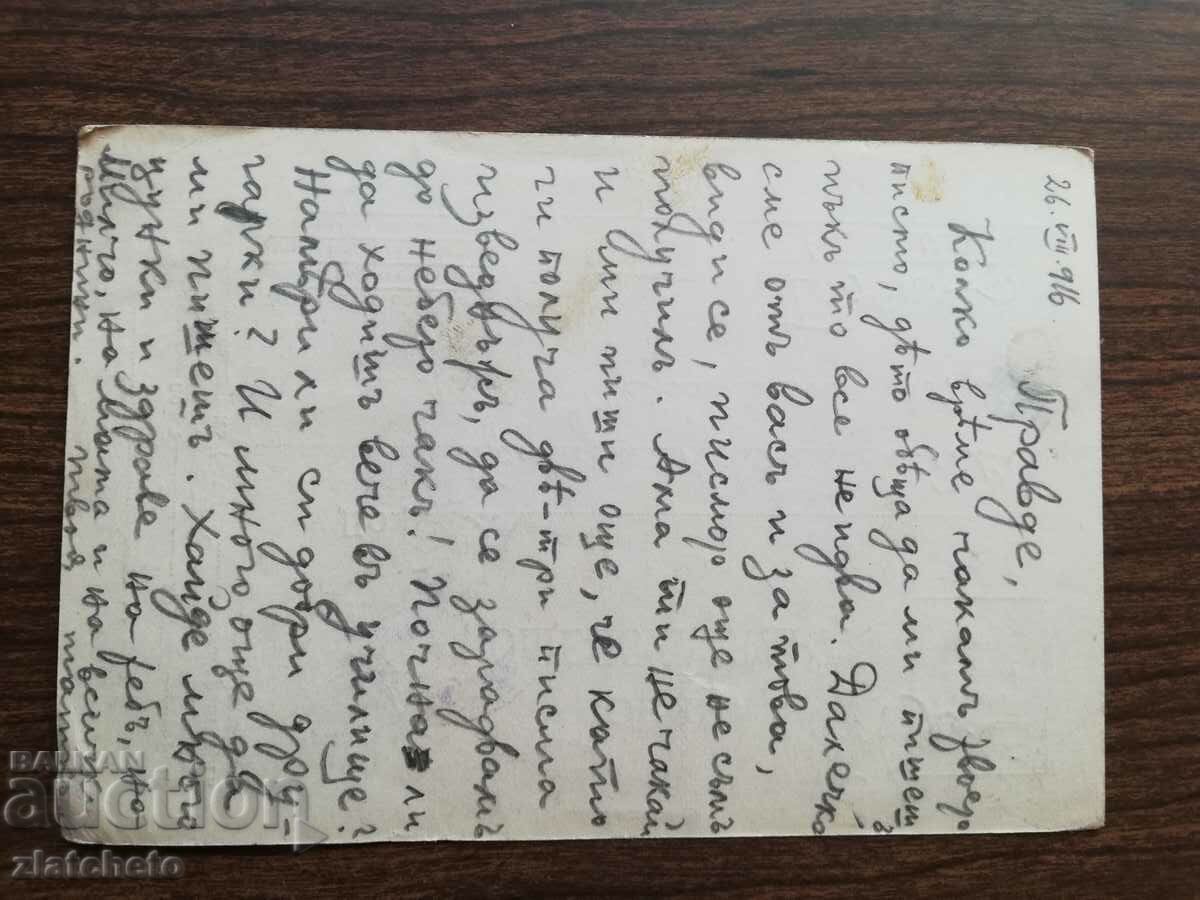 26.VIII.916
Правде,
Колко врѣме чакамъ твоето
писмо, дѣто обѣща да ми пишешъ,
пъкъ то все не идва. Далечко
сме отъ васъ и за това,
види се, писмото още не съмъ
получилъ. Ама ти не чакай
и ми пиши още, че като
ги получа двѣ-три писма
изведнъжъ, да се зарадвамъ
до небето чакъ! Почна ли
да ходишъ вече въ училище?
Намѣри ли си добри дру-
гарки? И много още да
ми пишешъ. Хайде много
цунки и здраве на тебъ, на
Милчо, на мама и на всички
роднини. твоя татко
BALKAN
auction
zlatcheto